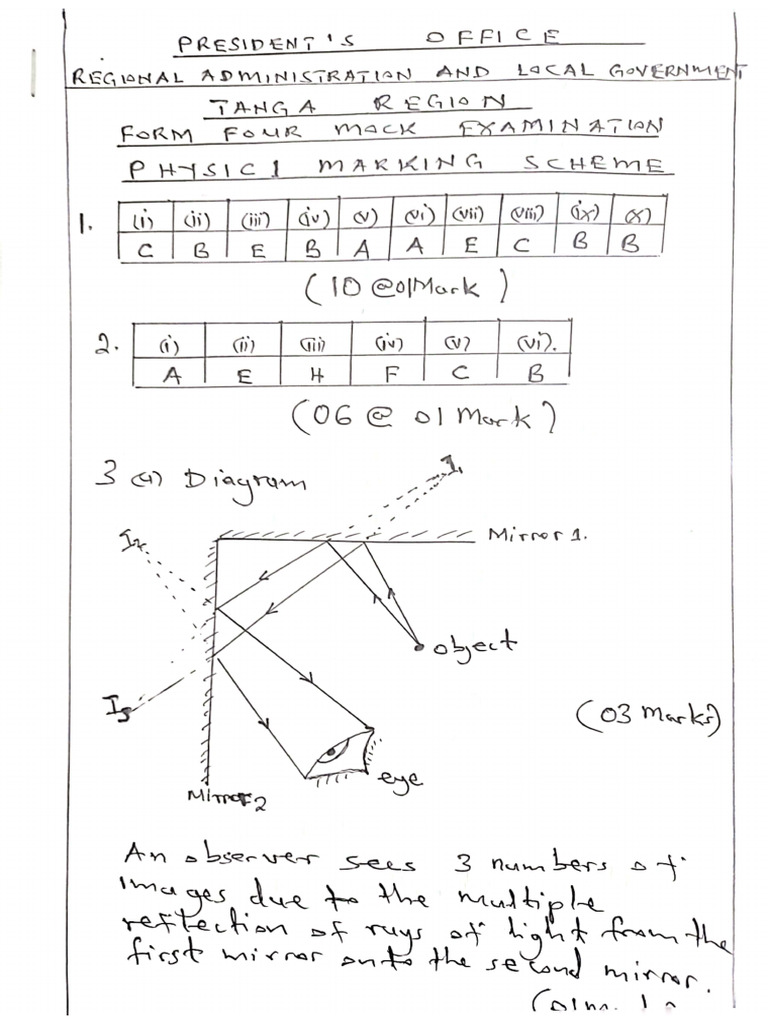 PRESIDENT'S OFFICE
REGIONAL ADMINISTRATION AND LOCAL GOVERNMENT
TANGA REGION
FORM FOUR MOCK EXAMINATION
PHYSIC 1 MARKING SCHEME
1. (i) (ii) (iii) (iv) (v) (vi) (vii) (viii) (ix) (x)
C B E B A A E C B B
(10 @ 01 Mark)
2. (i) (ii) (iii) (iv) (v) (vi).
A E H F C B
(06 @ 01 Mark)
3 (a) Diagram
I1
I2
Mirror 1.
object
I3
(03 Marks)
eye
Mirror 2
An observer sees 3 numbers of
images due to the multiple
reflection of rays of light from the
first mirror onto the second mirror.